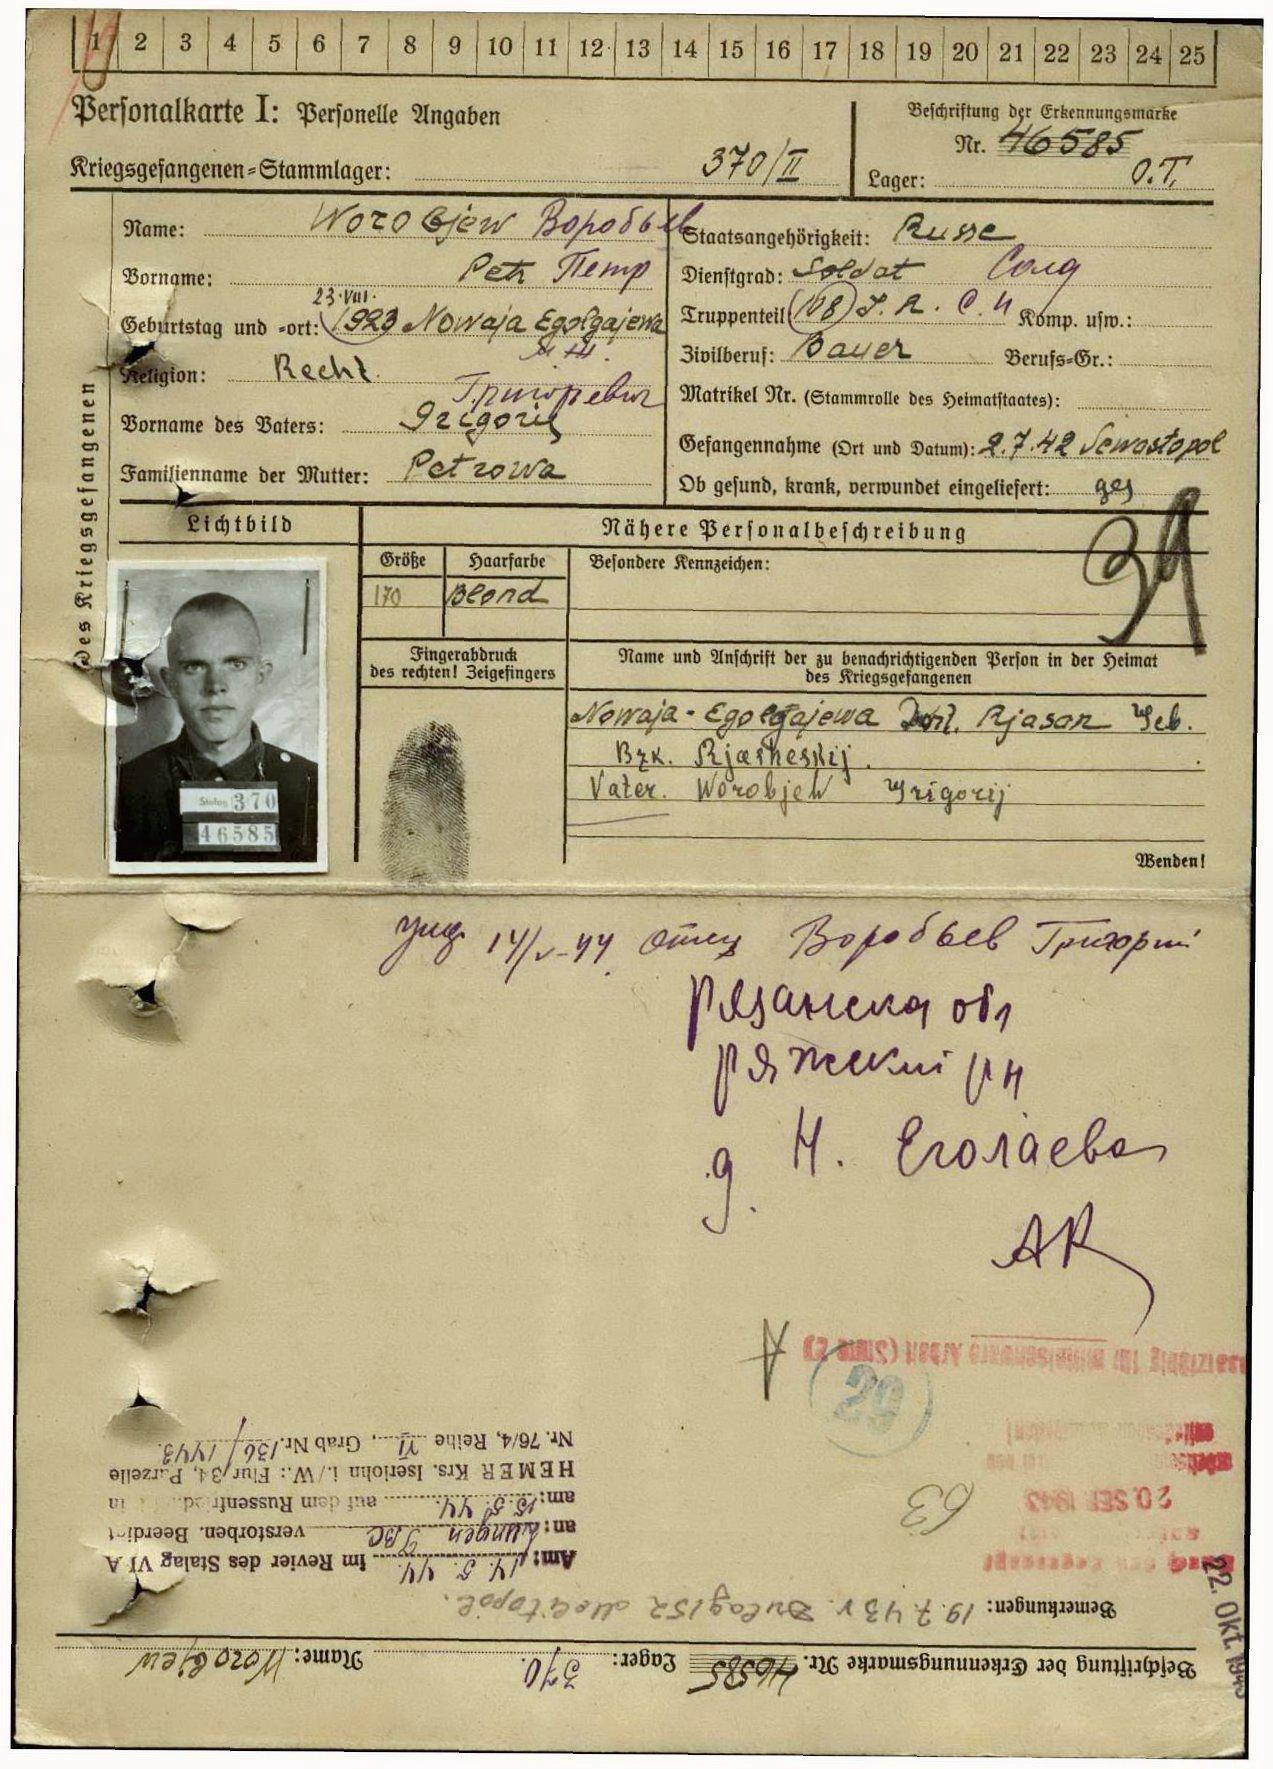 1 2 3 4 5 6 7 8 9 10 11 12 13 14 15 16 17 18 19 20 21 22 23 24 25
Personalkarte I: Personelle Angaben
Beschriftung der Erkennungsmarke
Nr. 46585
Kriegsgefangenen=Stammlager: 370/II
Lager: O.T.
Des Kriegsgefangenen
Name: Worobjew Воробьев
Staatsangehörigkeit: Russe
Vorname: Petr Петр
Dienstgrad: Soldat Солд
23.VIII.
Geburtstag und =ort: 1923 Nowaja Egolgajewa
Truppenteil J.R. Komp. usw.:
Zivilberuf: Bauer Berufs=Gr.:
Religion: Recht.
Григорьевич
Matrikel Nr. (Stammrolle des Heimatstaates):
Vorname des Vaters: Grigorij
Gefangennahme (Ort und Datum): 2.7.42 Sewastopol
Familienname der Mutter: Petrowa
Ob gesund, krank, verwundet eingeliefert: ges
Lichtbild
Nähere Personalbeschreibung
Größe Haarfarbe Besondere Kennzeichen:
170 Blond
Fingerabdruck
des rechten! Zeigefingers
Name und Anschrift der zu benachrichtigenden Person in der Heimat
des Kriegsgefangenen
Nowaja-Egolgajewa Rjasan Geb.
Bzk. Rjasheskij.
Vater. Worobjew Grigorij
Stalag 370
46585
Wenden!
14/V-44 отец Воробьев Григорий
Рязанска обл
Ряжский рн
д. Н. Еголаева
АК
einsatzfähig für mittelschwere Arbeit (Stufe 2)
29
63
20. SEP. 1943
22. Okt. 1943
Beschriftung der Erkennungsmarke Nr. 46585 Lager: 370. Name: Worobjew
Bemerkungen: 19.7.43 v. Dulag 152 Melitopol.
Am: 14.5.44 im Revier des Stalag VI A
an: Lungen TBC verstorben. Beerdigt
am: 15.5.44 auf dem Russenfriedhof in
HEMER Krs. Iserlohn i./W.: Flur 34, Parzelle
Nr. 76/4, Reihe VI, Grab Nr. 136/1443.